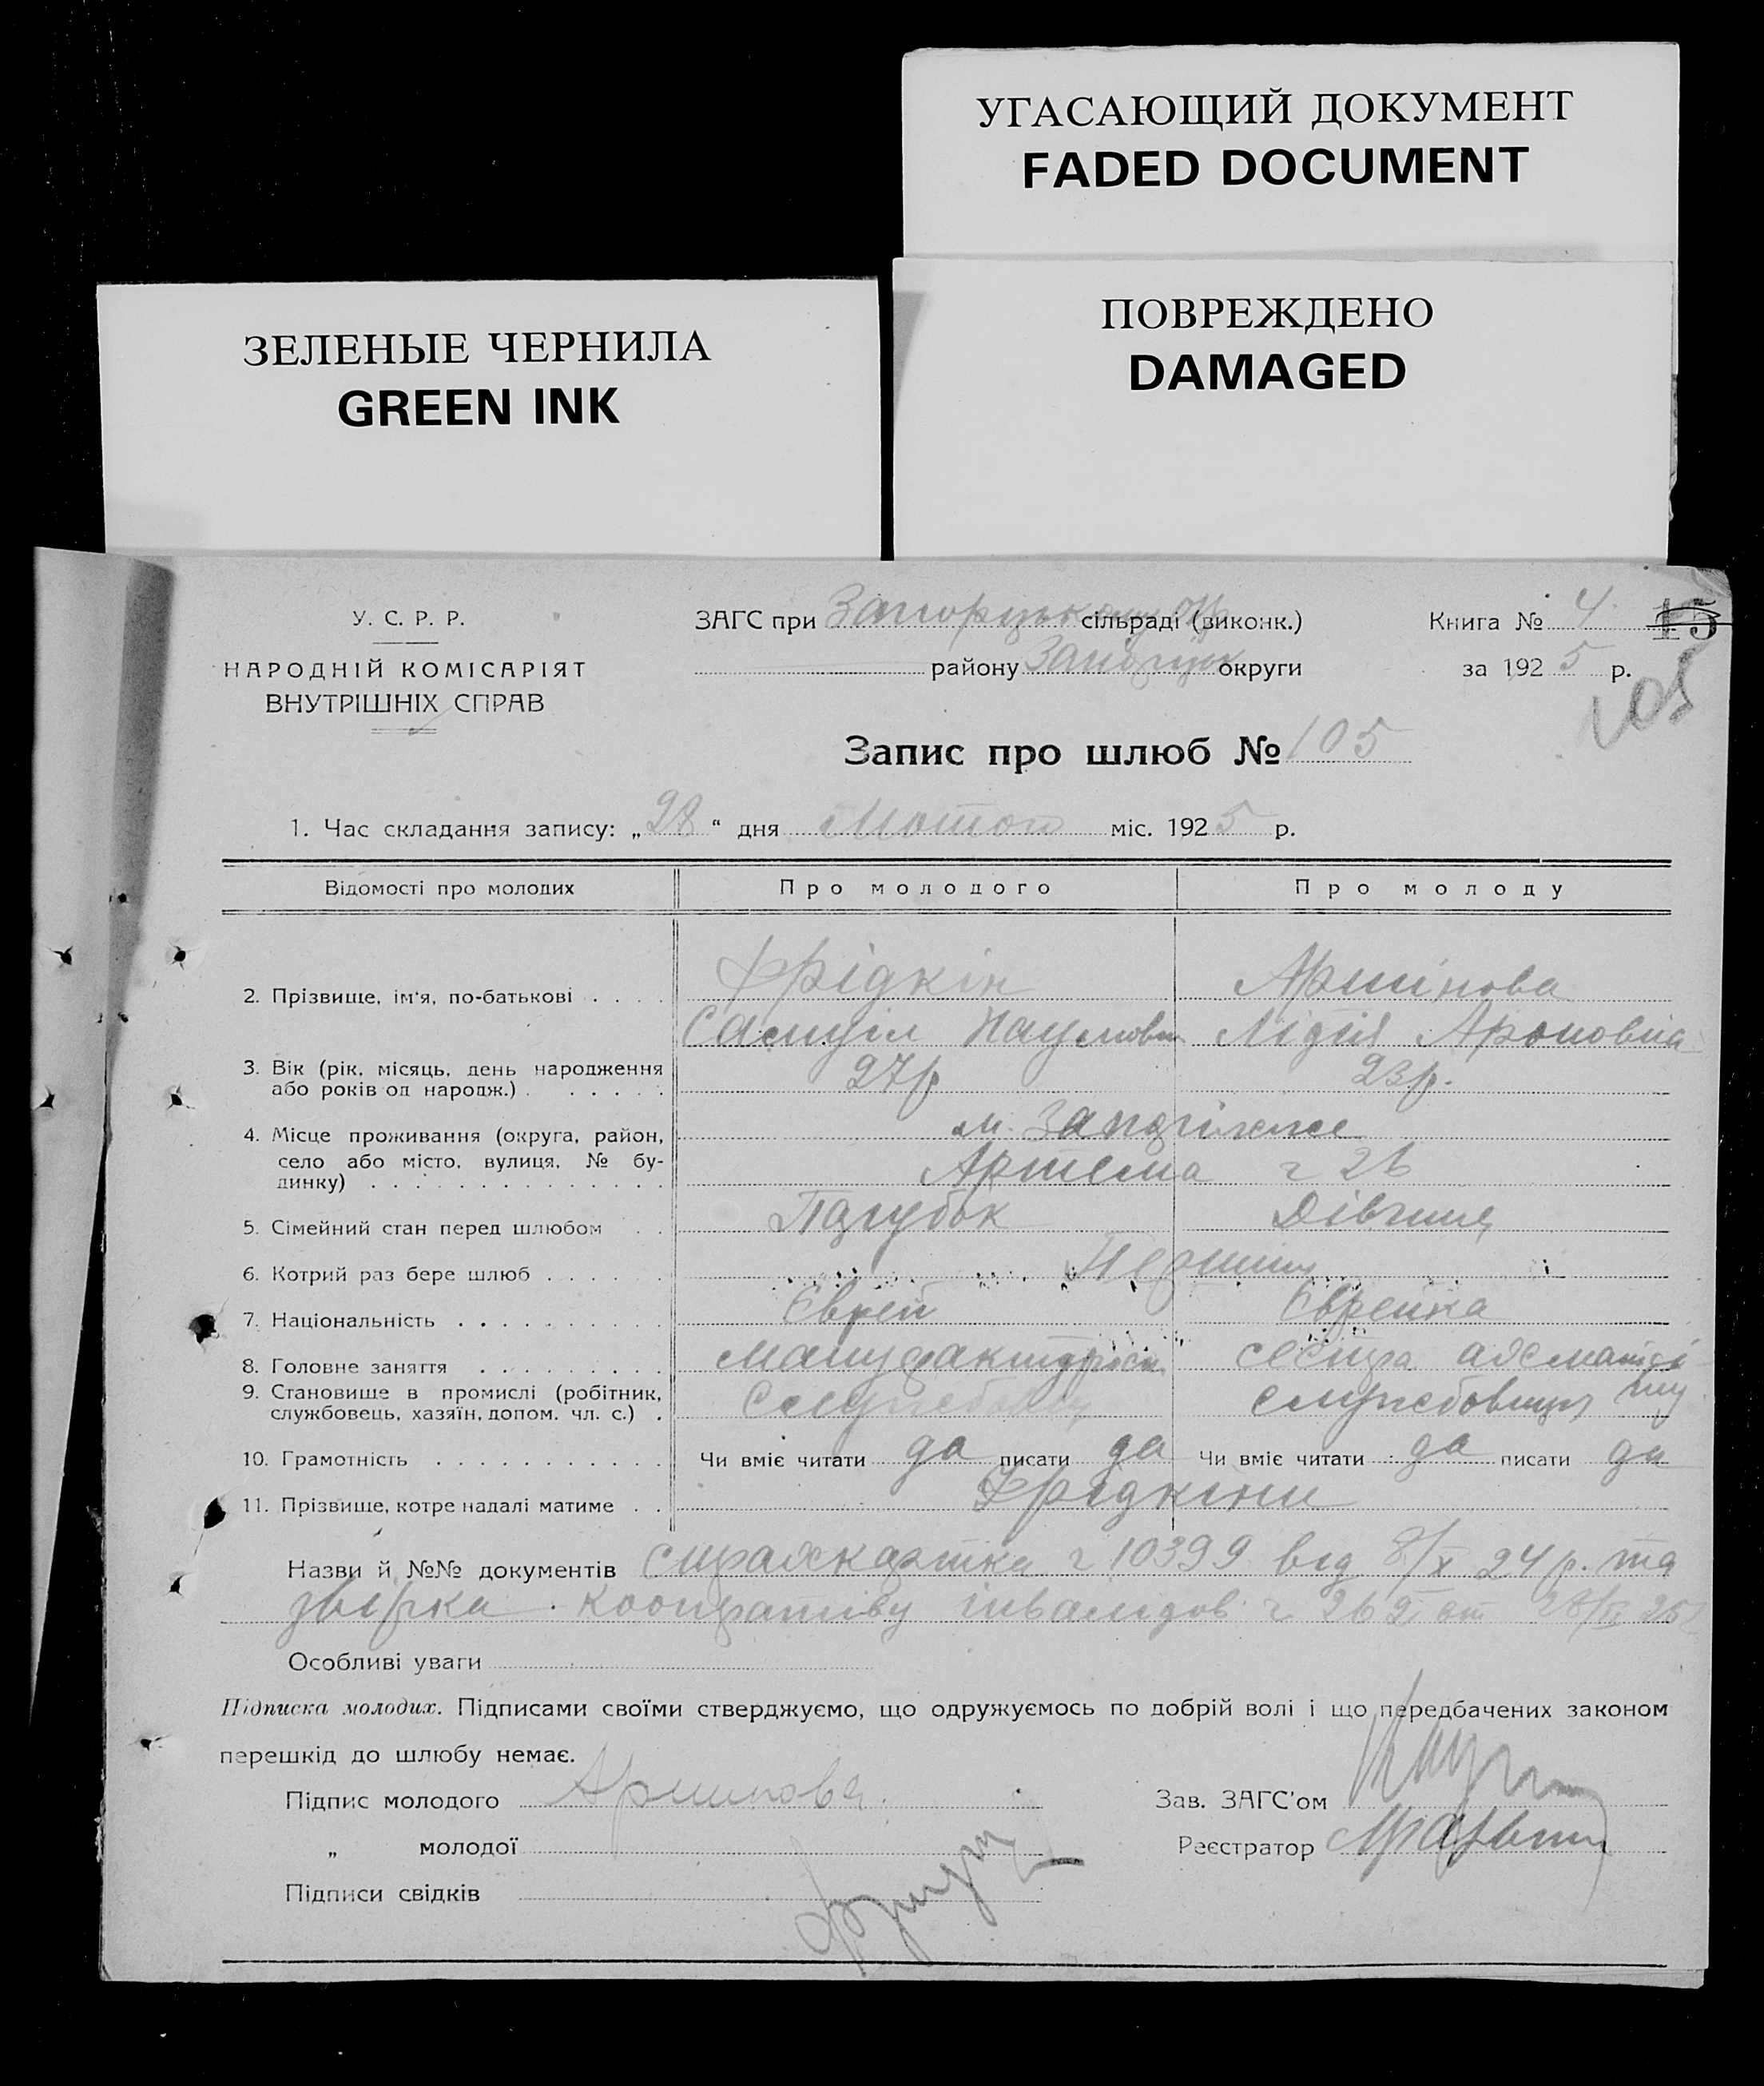 УГАСАЮЩИЙ ДОКУМЕНТ
FADED DOCUMENT
ЗЕЛЕНЫЕ ЧЕРНИЛА
GREEN INK
ПОВРЕЖДЕНО
DAMAGED
У. С. Р. Р.
НАРОДНІЙ КОМІСАРІЯТ
ВНУТРІШНІХ СПРАВ
ЗАГС при сільраді (виконк.)
району округи
Книга № 4 15
за 1925 р.
105
Запис про шлюб № 105
1. Час складання запису: „28“ дня міс. 1925 р.
Відомості про молодих Про молодого Про молоду
2. Прізвище, ім'я, по-батькові . . . . Фрідкін Аршінова
Самуіл Наумович Лідія Ароновна
3. Вік (рік, місяць, день народження
або років од народж.) . . . . . . 27 р 23 р.
4. Місце проживання (округа, район, м. Запоріжже
село або місто, вулиця, № бу-
динку) . . . . . . . . . . . . . . Артема ч 26
5. Сімейний стан перед шлюбом . . Парубок Дівчина
6. Котрий раз бере шлюб . . . . . Перший
7. Національність . . . . . . . . . . Єврей Єврейка
8. Головне заняття . . . . . . . . . сестра
9. Становище в промислі (робітник,
службовець, хазяїн, допом. чл. с.) . Службовець службовиця
10. Грамотність . . . . . . . . . . . Чи вміє читати да писати да Чи вміє читати да писати да
11. Прізвище, котре надалі матиме . . Фрідкіни
Назви й №№ документів ч 10399 від 8/X 24 р. та
кооперативу інвалідов ч 262 от
Особливі уваги
Підписка молодих. Підписами своїми стверджуємо, що одружуємось по добрій волі і що передбачених законом
перешкід до шлюбу немає.
Підпис молодого Аршинова Зав. ЗАГС'ом
„ молодої Реєстратор
Підписи свідків